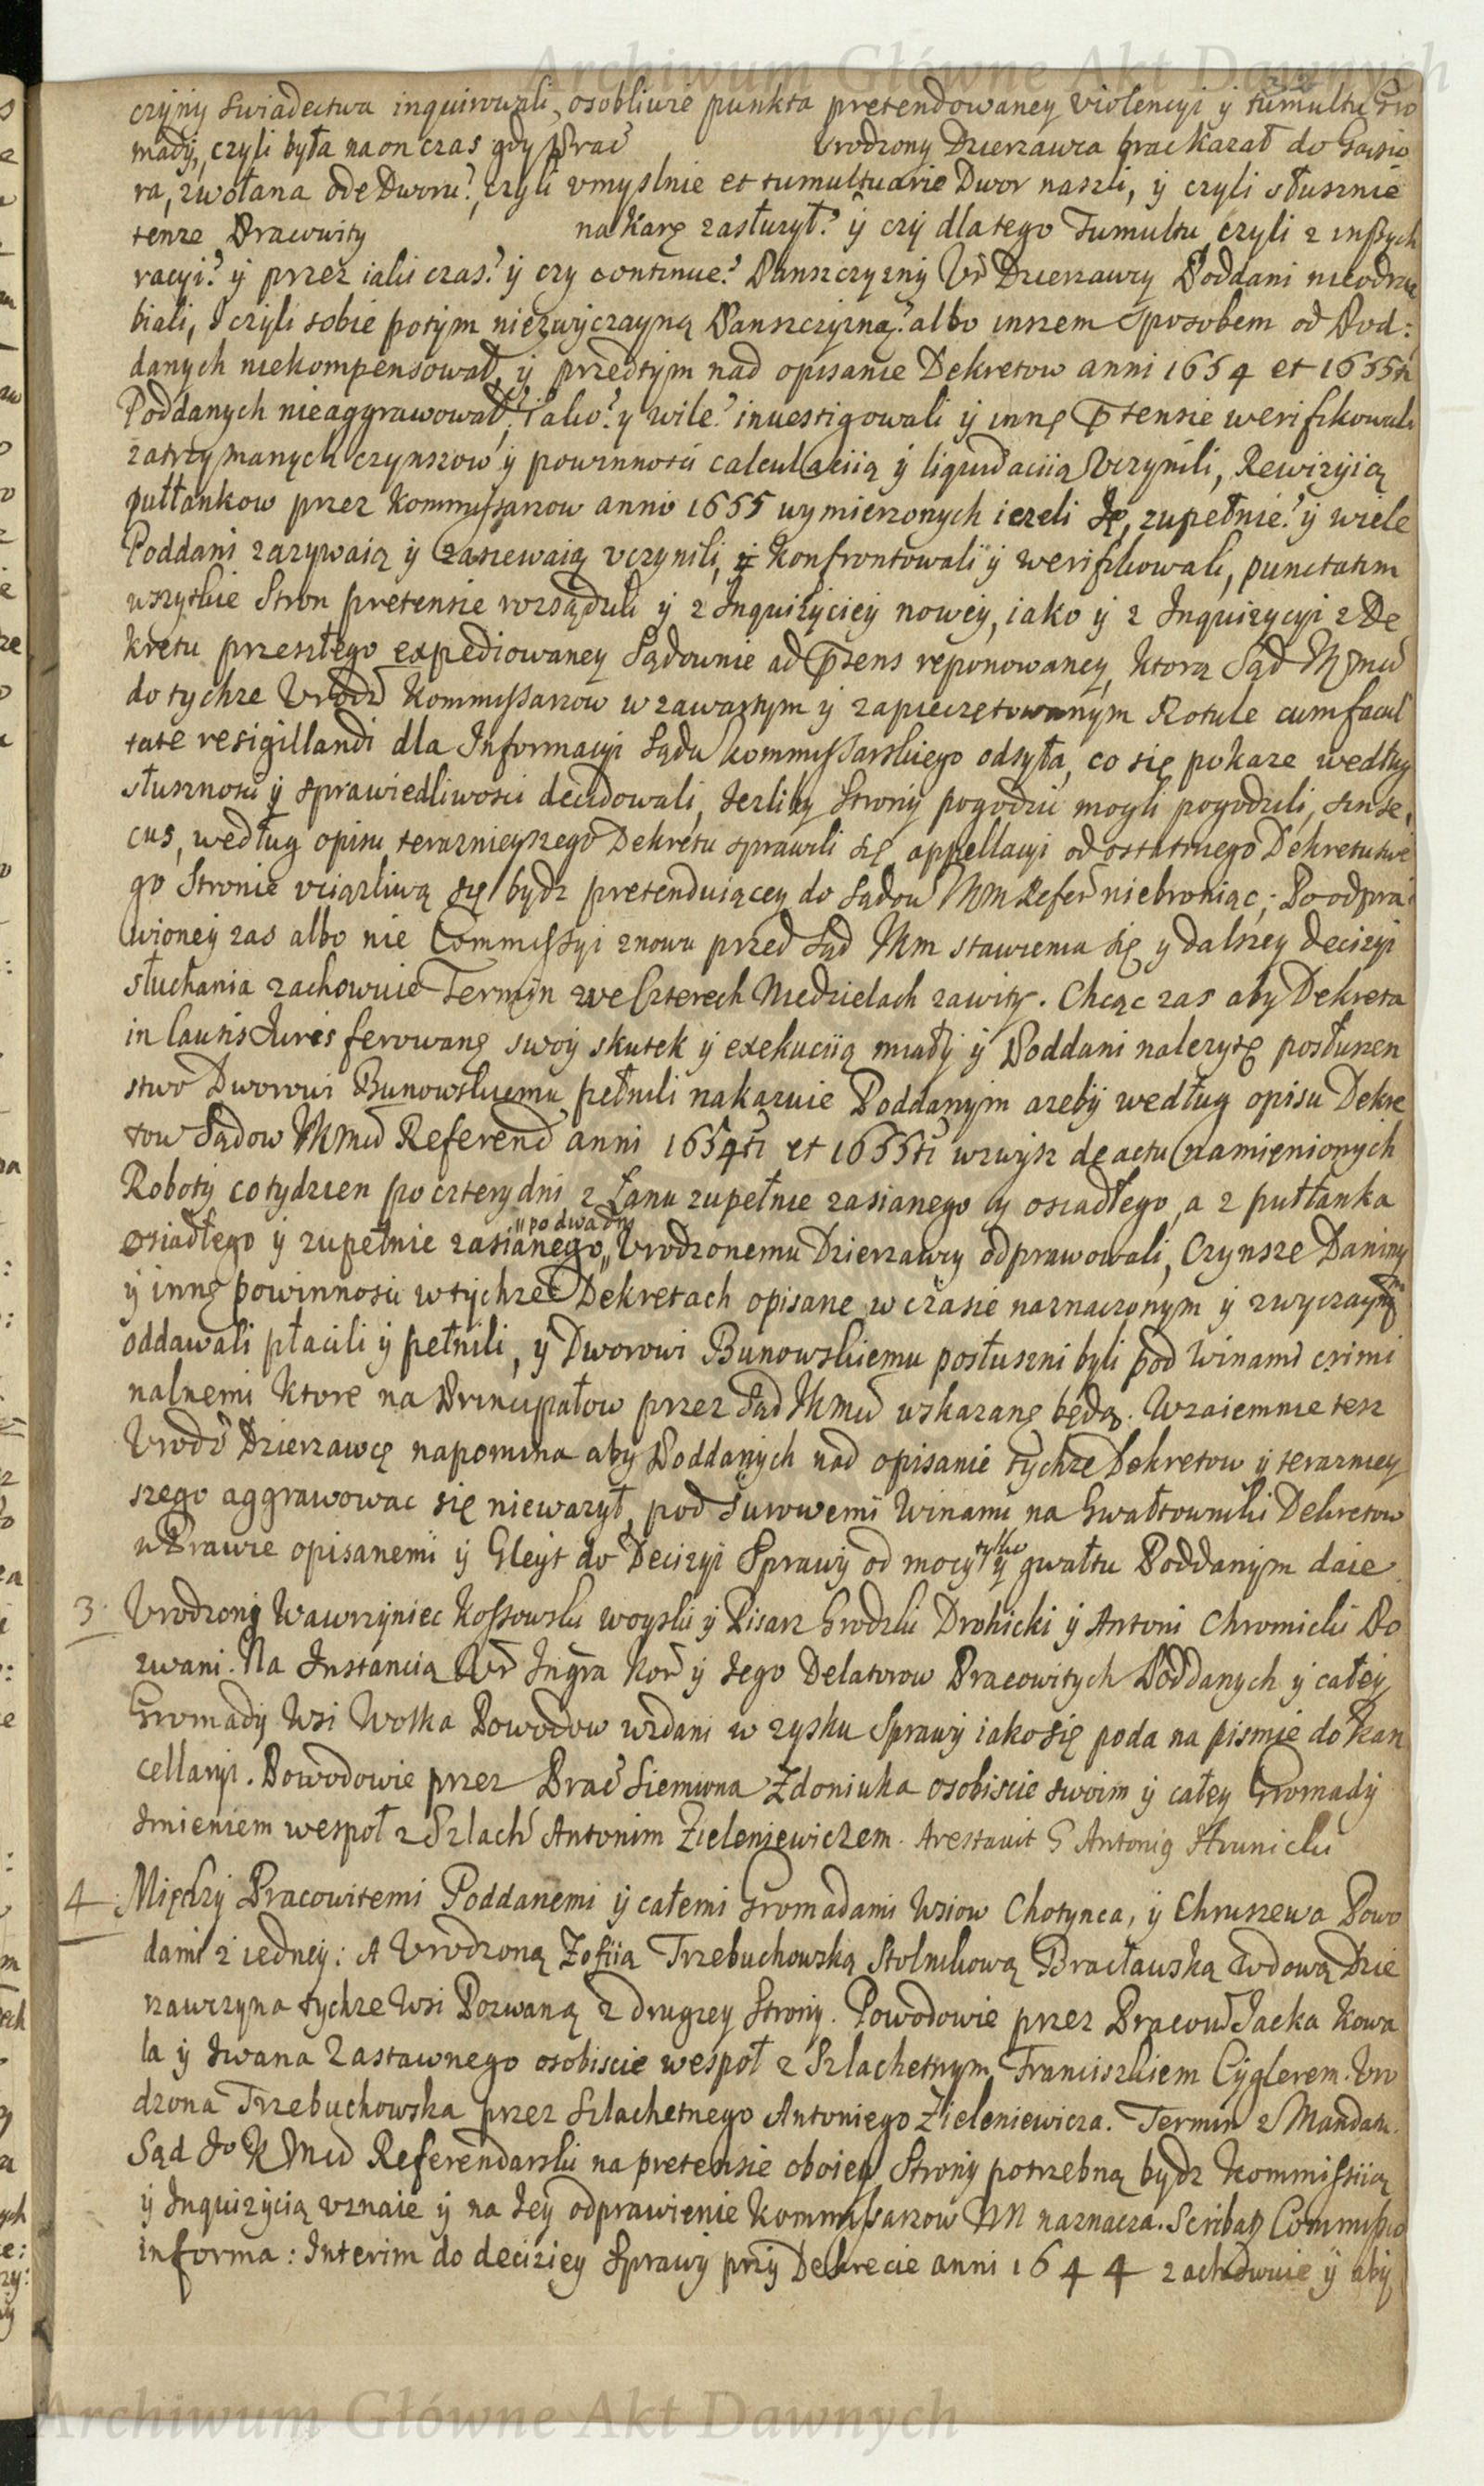 Archiwum Główne Akt Dawnych
czyny swiadectwa inquirowali, osobliwie punkta pretendowaney violencyi y tumultu Gro
mady, czyli była na on czas gdy Prać Vrodzony Dzierzawca brać kazał do Gąsio
ra, zwołana ode Dworu? czyli vmyslnie et tumultuarie Dwor naszli, y czyli słusznie
tenze Pracowity na karę zasłuzył? y czy dlatego Tumultu, czyli z inszych
racyi? y przez iaki czas? y czy continue? Panszczyzny Vr Dzierzawcy Poddani nieodra
biali, I czyli sobie potym niezwyczayną Panszczyzną? albo inszem sposobem od Pod:
danych niekompensował, y przedtym nad opisanie Dekretow anni 1654 et 1655ti
Poddanych nieaggrawował? iako? y wile? inuestigowali y innę ptensie werifikowali
zatrzymanych czynszow y powinności calculaciią y liquidaciią Vczynili, Rewizyią
pułłankow przez Kommissarzow anni 1655 wymierzonych iezeli Są, zupełnie? y wiele
Poddani zazywaią y zasiewaią vczynili, y Konfrontowali y werifikowali, punctatim
wszytkie Stron pretensie rozsądzili y z Inquizyciey nowey, iako y z Inquizycyi z De
kretu przeszłego expediowaney Sądownie ad psens reponowaney, ktorą Sąd JKMci
do tychze Vrodz Kommissarzow w zawartym y zapieczętowanym Rotule cum facul
tate resigillandi dla Informacyi Sądu Kommissarskiego odsyła, co się pokaze według
słusznosci y sprawiedliwosci decidowali, Jezliby Strony pogodzic mogli pogodzili, sin se,
cus, według opisu teraznieyszego Dekretu sprawili się, appellacyi od ostatniego Dekretu swe
go Stronie vciązliwą się bydz pretenduiącey do Sądow JKM Refer niebroniąc; Po odpra
wioney zas albo nie Commissyi znowu przed Sąd JKm stawienia się y dalszey decizyi
słuchania zachowuie Termin we Czterech Niedzielach zawity. Chcąc zas aby Dekreta
in Causis Juris ferowanę swoy skutek y exekuciią miały y Poddani nalezytę posłuszen
stwo Dworowi Bunowskiemu pełnili nakazuie Poddanym azeby według opisu Dekre
tow Sądow JKMci Referend anni 1654ti et 1655ti wzwysz de actu namienionych
Roboty co tydzien po cztery dni z Łanu zupełnie zasianego y osiadłego, a z pułłanka
osiadłego y zupełnie zasianego "po dwa dni" Vrodzonemu Dzierzawcy odprawowali, Czynsze Daniny
y innę powinnosci w tychze Dekretach opisane w czasie naznaczonym y zwyczaynym
oddawali płacili y pełnili, y Dworowi Bunowskiemu posłuszni byli pod winami crimi
nalnemi ktore na Principałow przez Sąd JKMci wskazanę będą. Wzaiemnie tesz
Vrodz Dzierzawcę napomina aby Poddanych nad opisanie tychze Dekretow y terazniey
szego aggrawowac się niewazył, pod surowemi Winami na Gwałtowniki Dekretow
w Prawie opisanemi y Gleyt do Decizyi Sprawy od mocy tylko y gwałtu Poddanym daie.
3. Vrodzony Wawrzyniec Kossowski woyski y Pisarz Grodzki Drohicki y Antoni Chromicki Po
zwani. Na Instancią Vr Ingra Kor y Jego Delatorow Pracowitych Poddanych y całey
Gromady Wsi Wolka Powodow wzdani w zysku Sprawy iako się poda na pismie do Kan
cellaryi. Powodowie przez Prać Siemiona Zdoniuka osobiscie swoim y całey Gromady
Imieniem wespoł z Szlach Antonim Zieleniewiczem. Arestauit G Antonig Hrunicki
4. Między Pracowitemi Poddanemi y całemi Gromadami Wsiow Chotynca, y Chruszewa Powo
dami z iedney: A Vrodzoną Zofiią Trzebuchowską Stolnikową Bracławską wdową Dzie
rzawczyną tychze Wsi Pozwaną z drugiey Strony. Powodowie przez Pracow Jacka Kowa
la y Iwana Zastawnego osobiscie wespoł z Szlachetnym Franciszkiem Cyglerem. Vro
dzona Trzebuchowska przez Szlachetnego Antoniego Zieleniewicza. Termin z Mandatu.
Sąd Jo K Mci Referendarski na pretensie oboiey Strony potrzebną bydz Kommissiią
y Inquizycią vznaie y na Jey odprawienie Kommissarzow JKM naznacza. Scribaę Commissio
informa: Interim do deciziey Sprawy przy Dekrecie anni 1644 zachowuie y aby
Archiwum Główne Akt Dawnych